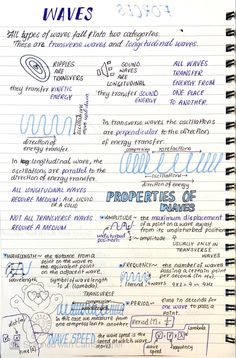 WAVES
All types of waves fall into two categories.
These are transverse waves and longitudinal waves.
RIPPLES
ARE
TRANSVERSE
they transfer KINETIC
ENERGY
SOUND
WAVES
ARE
LONGITUDINAL
they transfer SOUND
ENERGY
ALL WAVES
TRANSFER
ENERGY FROM
ONE PLACE
TO ANOTHER.
In transverse waves the oscillations
are perpendicular to the direction
of energy transfer.
direction of
energy transfer
In longitudinal wave, the
oscillations are parallel to the
direction of energy transfer.
rarefactions
oscillations
direction of energy transfer
ALL LONGITUDINAL WAVES
REQUIRE MEDIUM: AIR, LIQUID
OR A SOLID
NOT ALL TRANSVERSE WAVES
REQUIRE A MEDIUM
PROPERTIES OF
WAVES
AMPLITUDE - the maximum displacement
of a point on a wave away
from its undisturbed position
symbol of
amplitude
USUALLY ONLY IN
TRANSVERSE
WAVES
WAVELENGTH - the distance from a
point on the wave to
the equivalent point
on the adjacent wave.
symbol of wavelength
(lambda)
FREQUENCY - the number of waves
passing a certain point
per second
TRANSVERSE
PERIOD - time in seconds for
one wave to pass a
point
In this case we measure from
one compression to another
WAVE SPEED
the wave speed is the
speed at which a wave
wave
speed
frequency
(lambda)